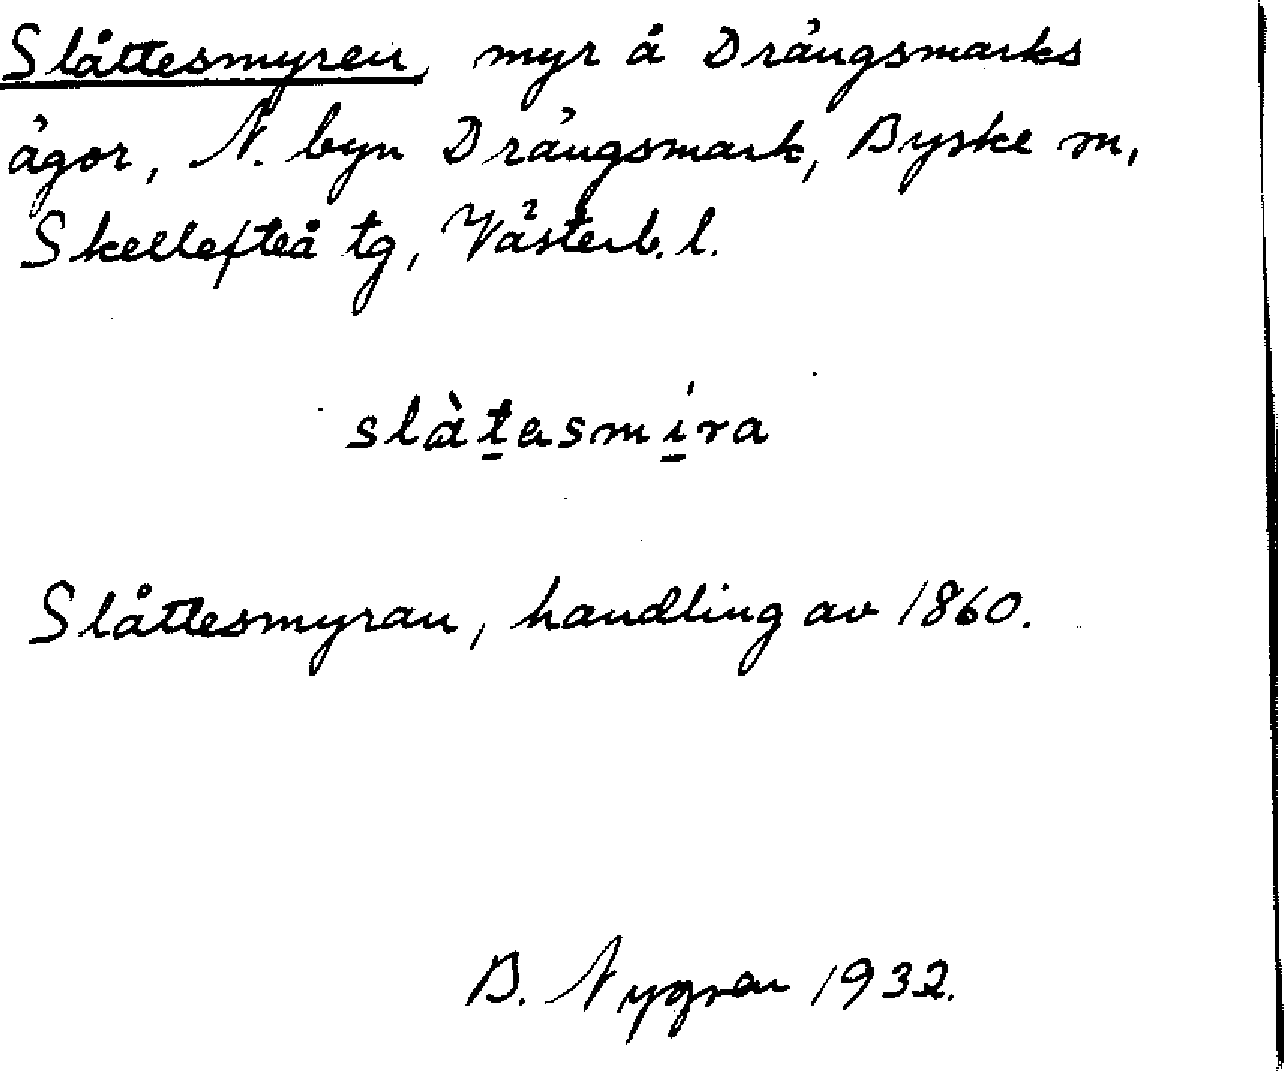 Slåttesmyren, myr å Drängsmarks
ägor, N. byn Drängsmark, Byske sn,
Skellefteå tg, Västerb. l.
slàt̠asmi̠ra
Slåttesmyran, handling av 1860.
B. Nygren 1932.